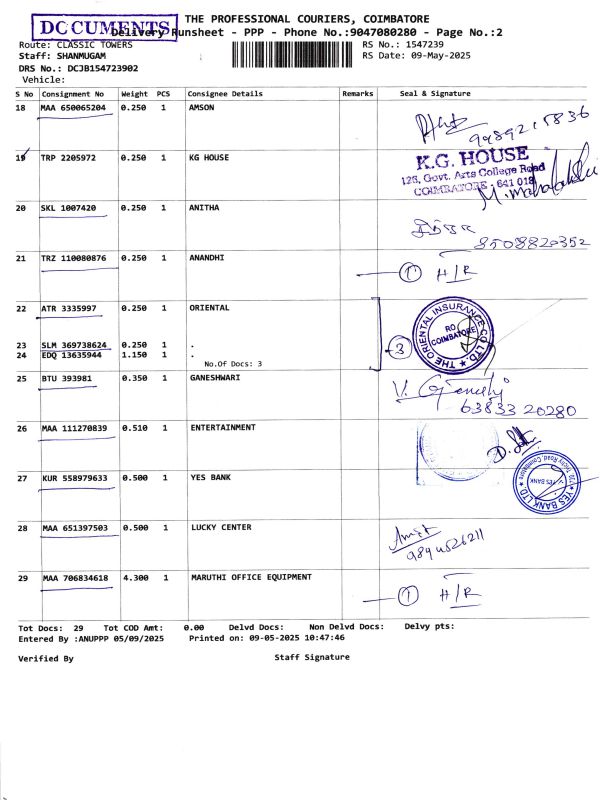 DOCUMENTS
THE PROFESSIONAL COURIERS, COIMBATORE
Delivery Runsheet - PPP - Phone No.:9047080280 - Page No.:2
Route: CLASSIC TOWERS
RS No.: 1547239
Staff: SHANMUGAM
RS Date: 09-May-2025
DRS No.: DCJB154723902
Vehicle:
S No Consignment No Weight PCS Consignee Details Remarks Seal & Signature
18 MAA 650065204 0.250 1 AMSON
19 TRP 2205972 0.250 1 KG HOUSE
K.G. HOUSE
125, Govt. Arts College Road
COIMBATORE - 641 018
20 SKL 1007420 0.250 1 ANITHA
8508820352
21 TRZ 110080876 0.250 1 ANANDHI
1 H/R
22 ATR 3335997 0.250 1 ORIENTAL
THE ORIENTAL INSURANCE CO LTD
RO
COIMBATORE
3
23 SLM 369738624 0.250 1 .
24 EDQ 13635944 1.150 1 .
No.Of Docs: 3
25 BTU 393981 0.350 1 GANESHWARI
63833 20280
26 MAA 111270839 0.510 1 ENTERTAINMENT
27 KUR 558979633 0.500 1 YES BANK
YES BANK LTD
28 MAA 651397503 0.500 1 LUCKY CENTER
29 MAA 706834618 4.300 1 MARUTHI OFFICE EQUIPMENT
1 H/R
Tot Docs: 29 Tot COD Amt: 0.00 Delvd Docs: Non Delvd Docs: Delvy pts:
Entered By :ANUPPP 05/09/2025 Printed on: 09-05-2025 10:47:46
Verified By Staff Signature